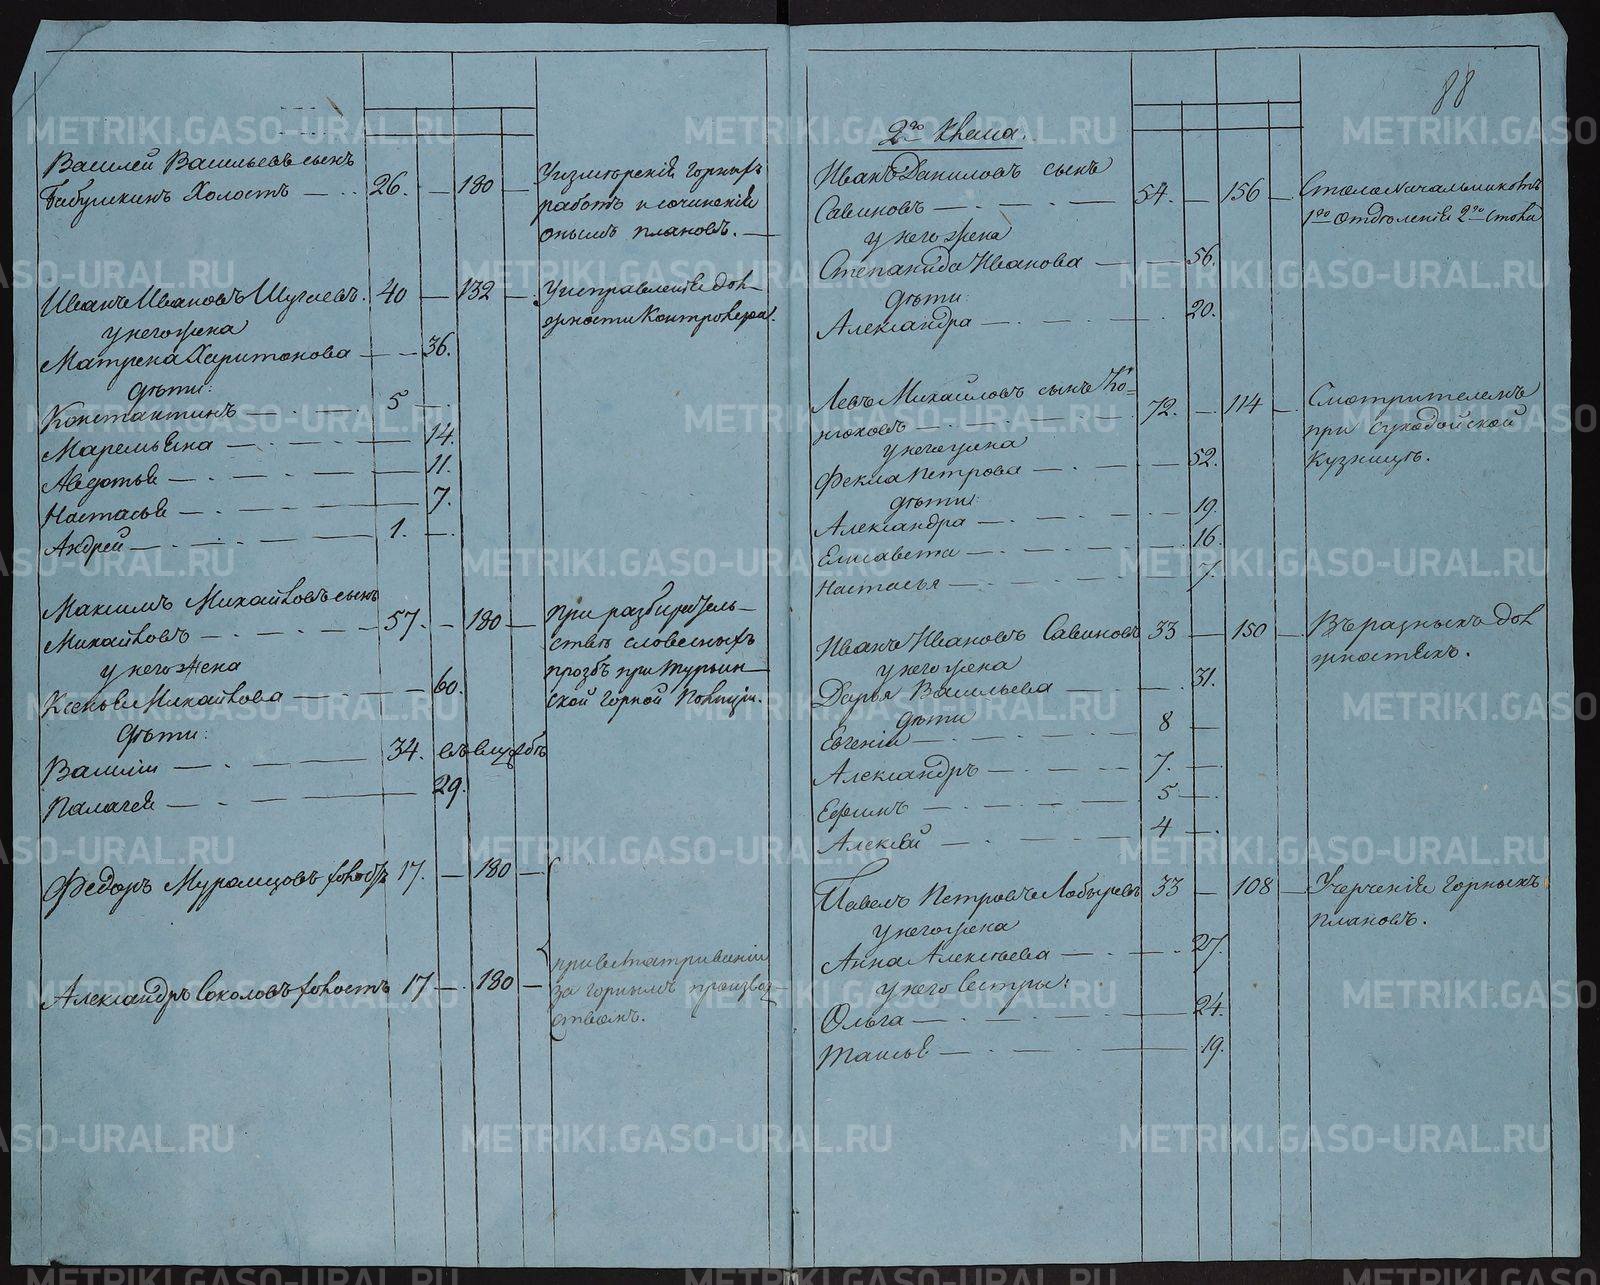 Василей Васильевъ сынъ
Бабушкинъ Холостъ — 26. — 180 —
горныхъ
работъ и сочинение
оныхъ плановъ. —
Иванъ Ивановъ 40 — 132 —
Уисправление дол-
жности Контролера.
у него жена
Матрена Харитонова — 36.
дѣти:
Константинъ — 5 —
Маремьяна — 14.
Авдотья — 11.
Настасья — 7.
Андрей — 1. —
Максимъ Михайловъ сынъ
Михайловъ — 57. — 180 —
При разбиратель-
ствѣ словесныхъ
прозбъ при Турьин-
ской горной Полиции.
у него жена
Ксенья Михайлова — 60.
Дѣти:
Василии — 34. въ службѣ
Палагея — 29.
Федоръ Муромцовъ холостъ 17. — 180 —
Александръ Соколовъ холостъ 17 — 180 —
за горнымъ производ-
ствомъ.
88
2го класа.
Иванъ Даниловъ сынъ
Савиновъ — 54. — 156 —
Столоначальникомъ
1го отдѣления 2го стола
у него жена
Степанида Иванова — 56.
дѣти:
Александра — 20.
Левъ Михаиловъ сынъ Ко-
нюховъ — 72. — 114 —
Смотрителемъ
при
Кузницѣ.
у него жена
Фекла Петрова — 52.
дѣти:
Александра — 19.
Елисавета — 16.
Настасья — 7.
Иванъ Ивановъ Савиновъ 33 — 150 —
Въ разныхъ дол
жностяхъ.
у него жена
Дарья Васильева — 31.
дѣти
Евгении — 8 —
Александръ — 7. —
Ефимъ — 5 —
Алексѣй — 4 —
Павелъ Петровъ Лобыревъ 33 — 108 —
Учерчения горныхъ
плановъ.
у него жена
Анна Алексѣева — 27.
у него Сестры:
Ольга — 24.
Таисья — 19.
METRIKI.GASO-URAL.RU